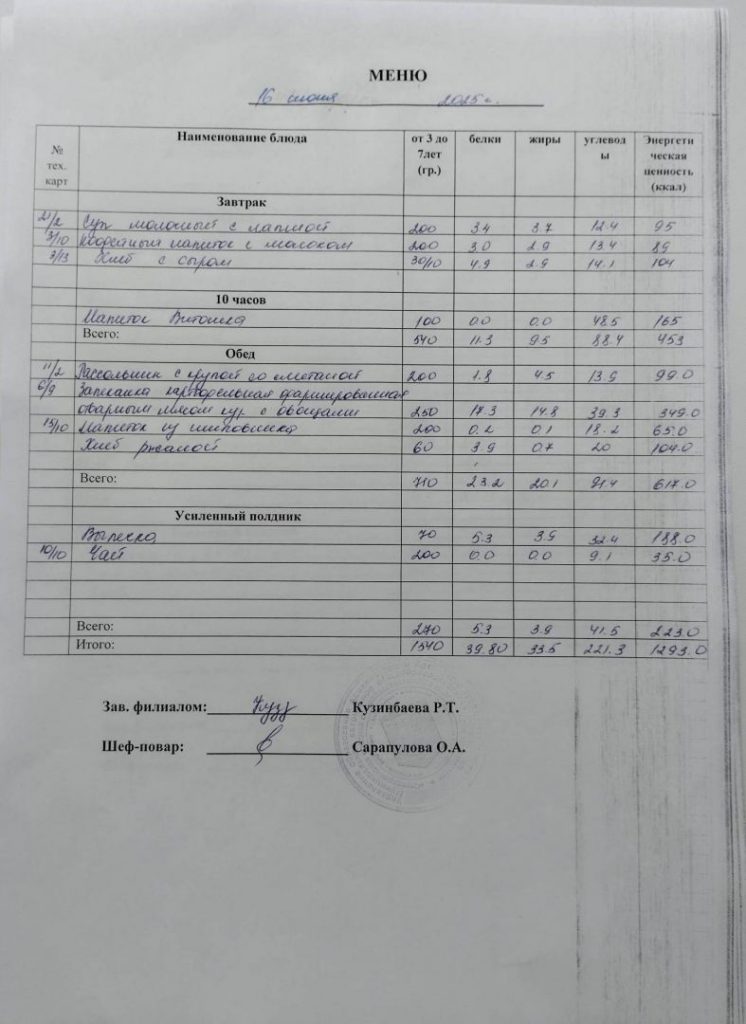 МЕНЮ
16 июня 2025 г.
№ тех. карт Наименование блюда от 3 до 7лет (гр.) белки жиры углеводы Энергетическая ценность (ккал)
Завтрак
21/2 Суп молочный с лапшой 200 3.4 3.7 12.4 95
3/10 Кофейный напиток с молоком 200 3.0 2.9 13.4 89
3/13 Хлеб с сыром 30/10 4.9 2.9 14.1 104
10 часов
Напиток Витошка 100 0.0 0.0 48.5 165
Всего: 540 11.3 9.5 88.4 453
Обед
11/2 Рассольник с крупой со сметаной 200 1.8 4.5 13.9 99.0
6/9 Запеканка картофельная фаршированная
отварным мясом кур с овощами 250 17.3 14.8 39.3 349.0
15/10 Напиток из шиповника 200 0.2 0.1 18.2 65.0
Хлеб ржаной 60 3.9 0.7 20 104.0
Всего: 710 23.2 20.1 91.4 617.0
Усиленный полдник
Выпечка 70 5.3 3.9 32.4 188.0
10/10 Чай 200 0.0 0.0 9.1 35.0
Всего: 270 5.3 3.9 41.5 223.0
Итого: 1540 39.80 33.5 221.3 1293.0
Зав. филиалом: Кузинбаева Р.Т.
Шеф-повар: Сарапулова О.А.